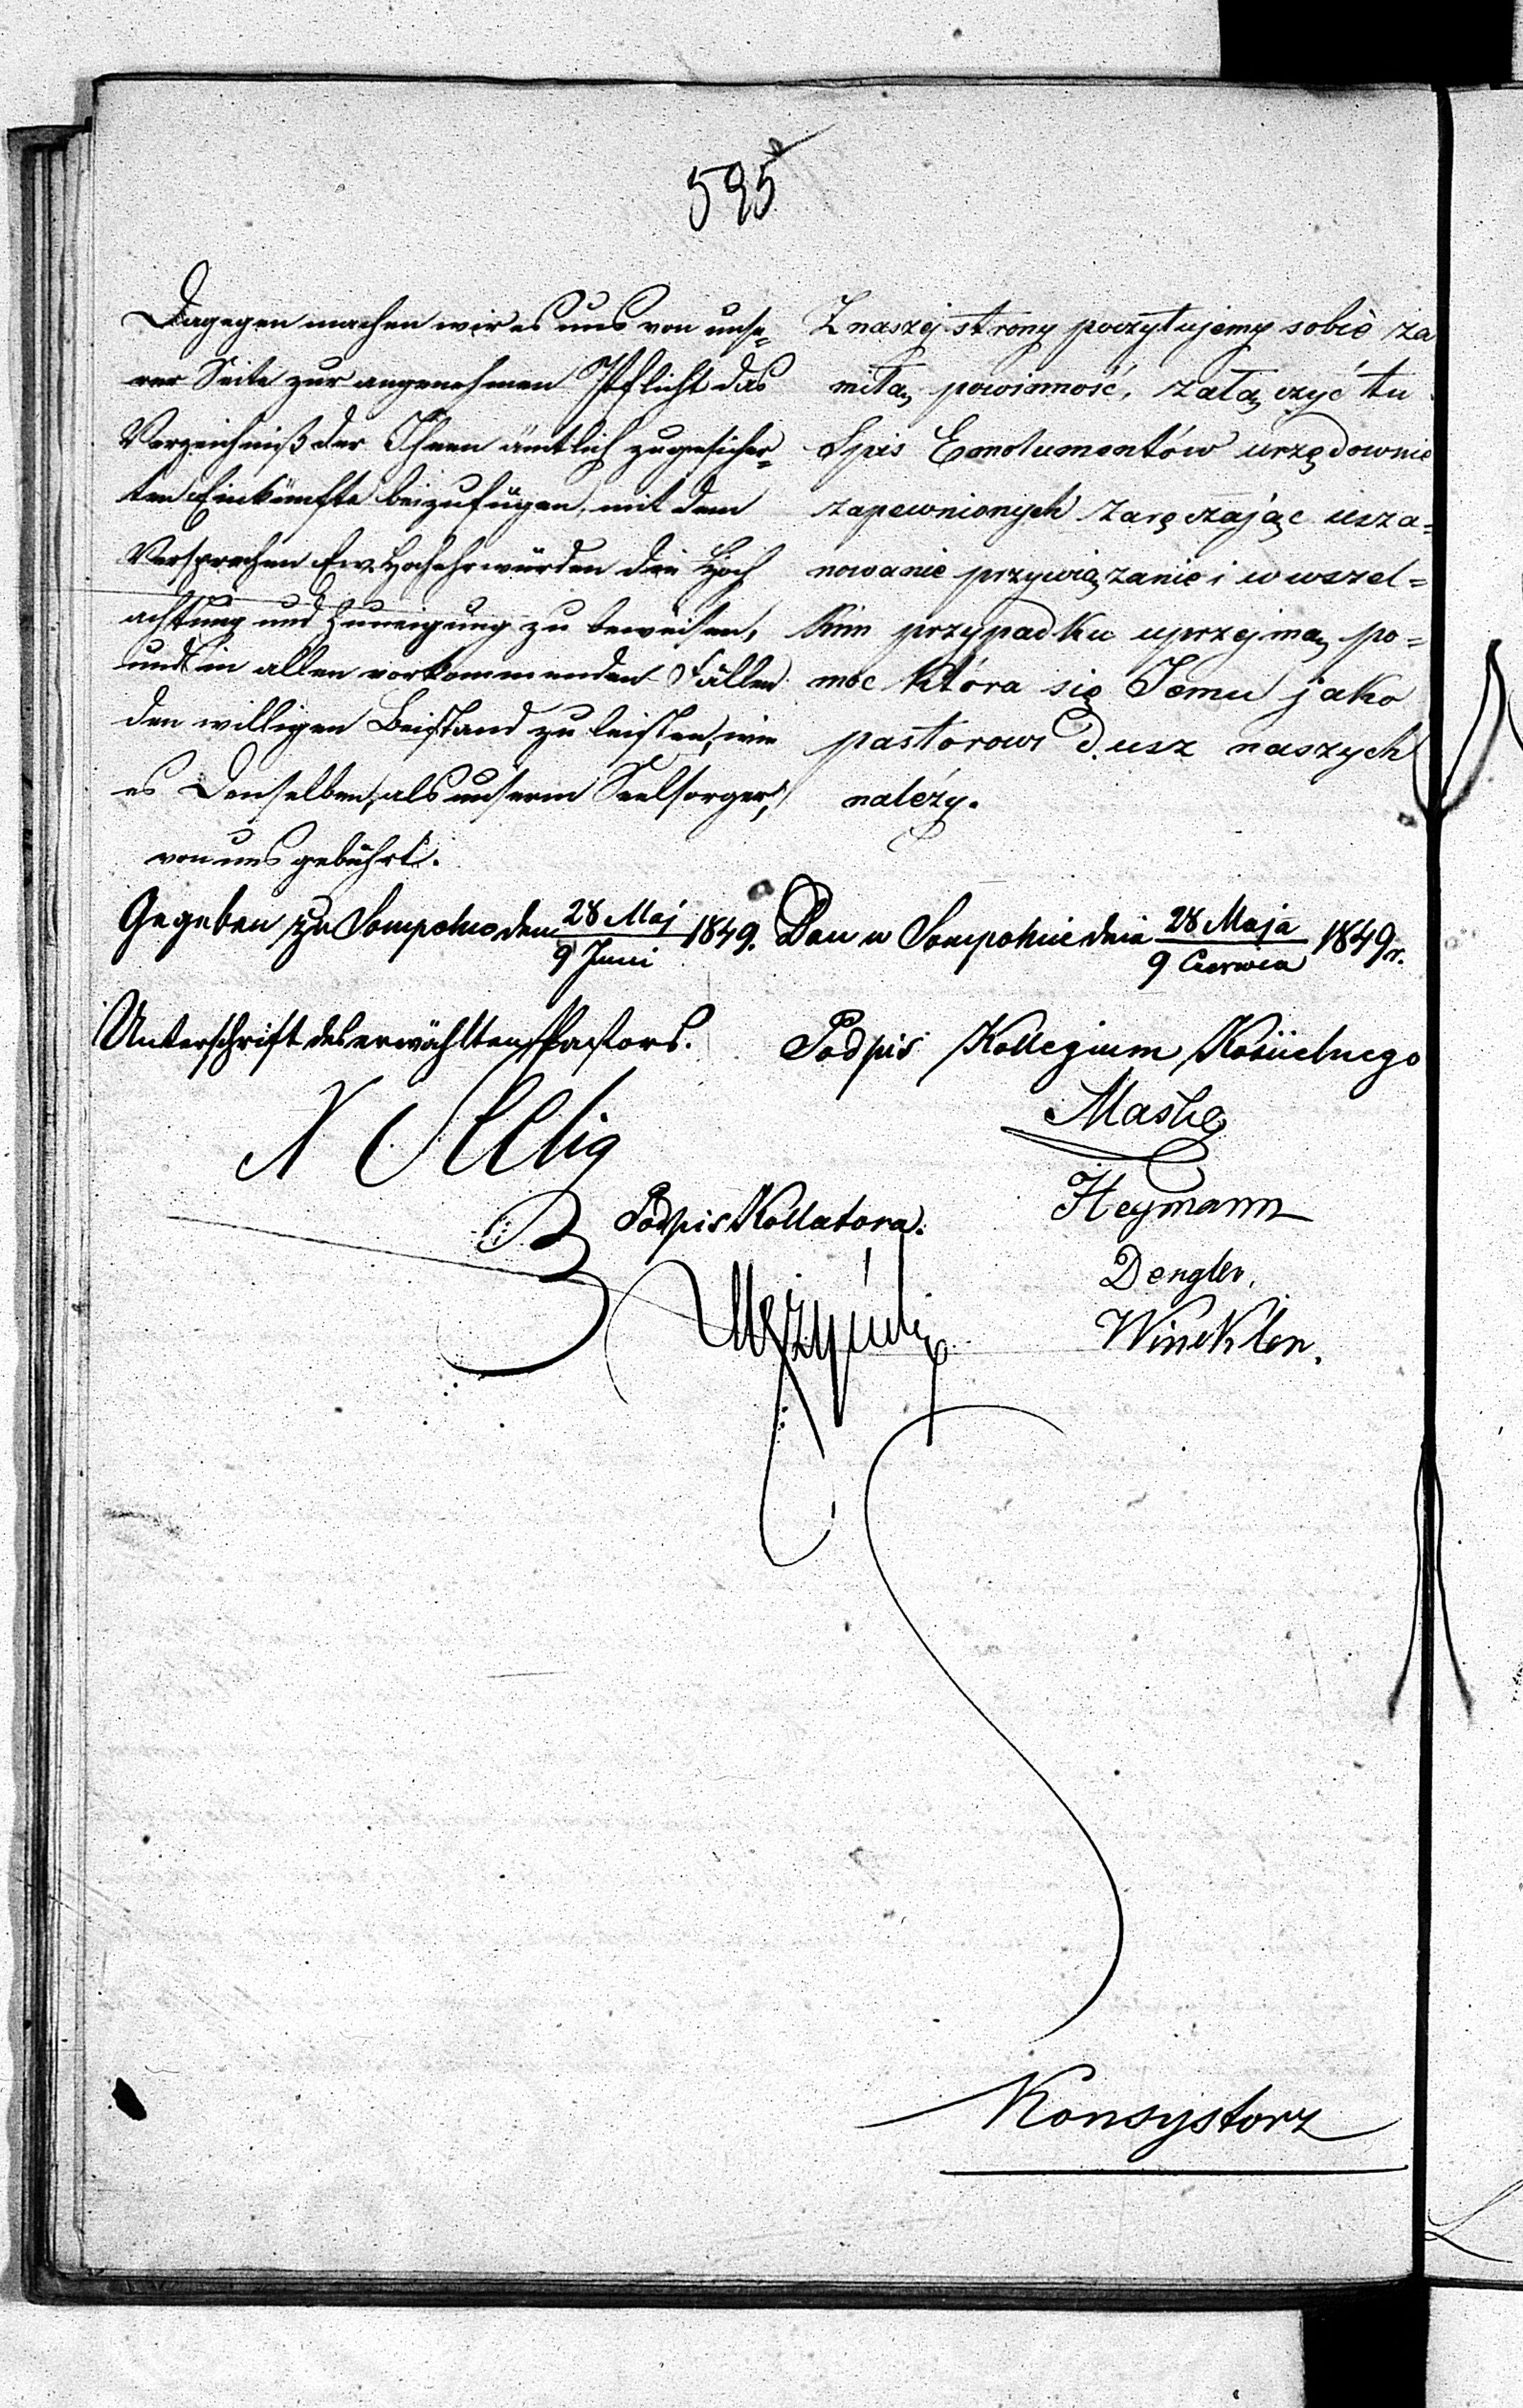 595
Dagegen machen wir es uns von unse=
rer Seite zur angenehmen Pflicht das
Verzeichniß der Ihnen ämtlich zugesicher=
ten Einkünfte beizufügen, mit dem
Versprechen Ew. Hochehrwürden die Hoch
achtung und Zuneigung zu beweisen,
und in allen vorkommenden Fällen
den willigen Beistand zu leisten, wie
es Denselben, als unserm Seelsorger,
von uns gebührt.
Gegeben zu Sompolno den 28 Maj / 9 Juni 1849.
Unterschrift des erwählten Pastors.
Z naszej strony poczytujemy sobie za
miłą powinność, załączyć tu
Spis Emolumentów urzędownie
zapewnionych zaręczając usza=
nowanie przywiązanie i w wszel=
kim przypadku uprzejmą po=
moc która się Jemu jako
pastorowi dusz naszych
należy.
Dan w Sompolnie dnia 28 Maja / 9 Czerwca 1849 r.
Podpis Kollegium Kościelnego
Heymann
Dengler.
Winckler.
Podpis Kollatora.
Konsystorz